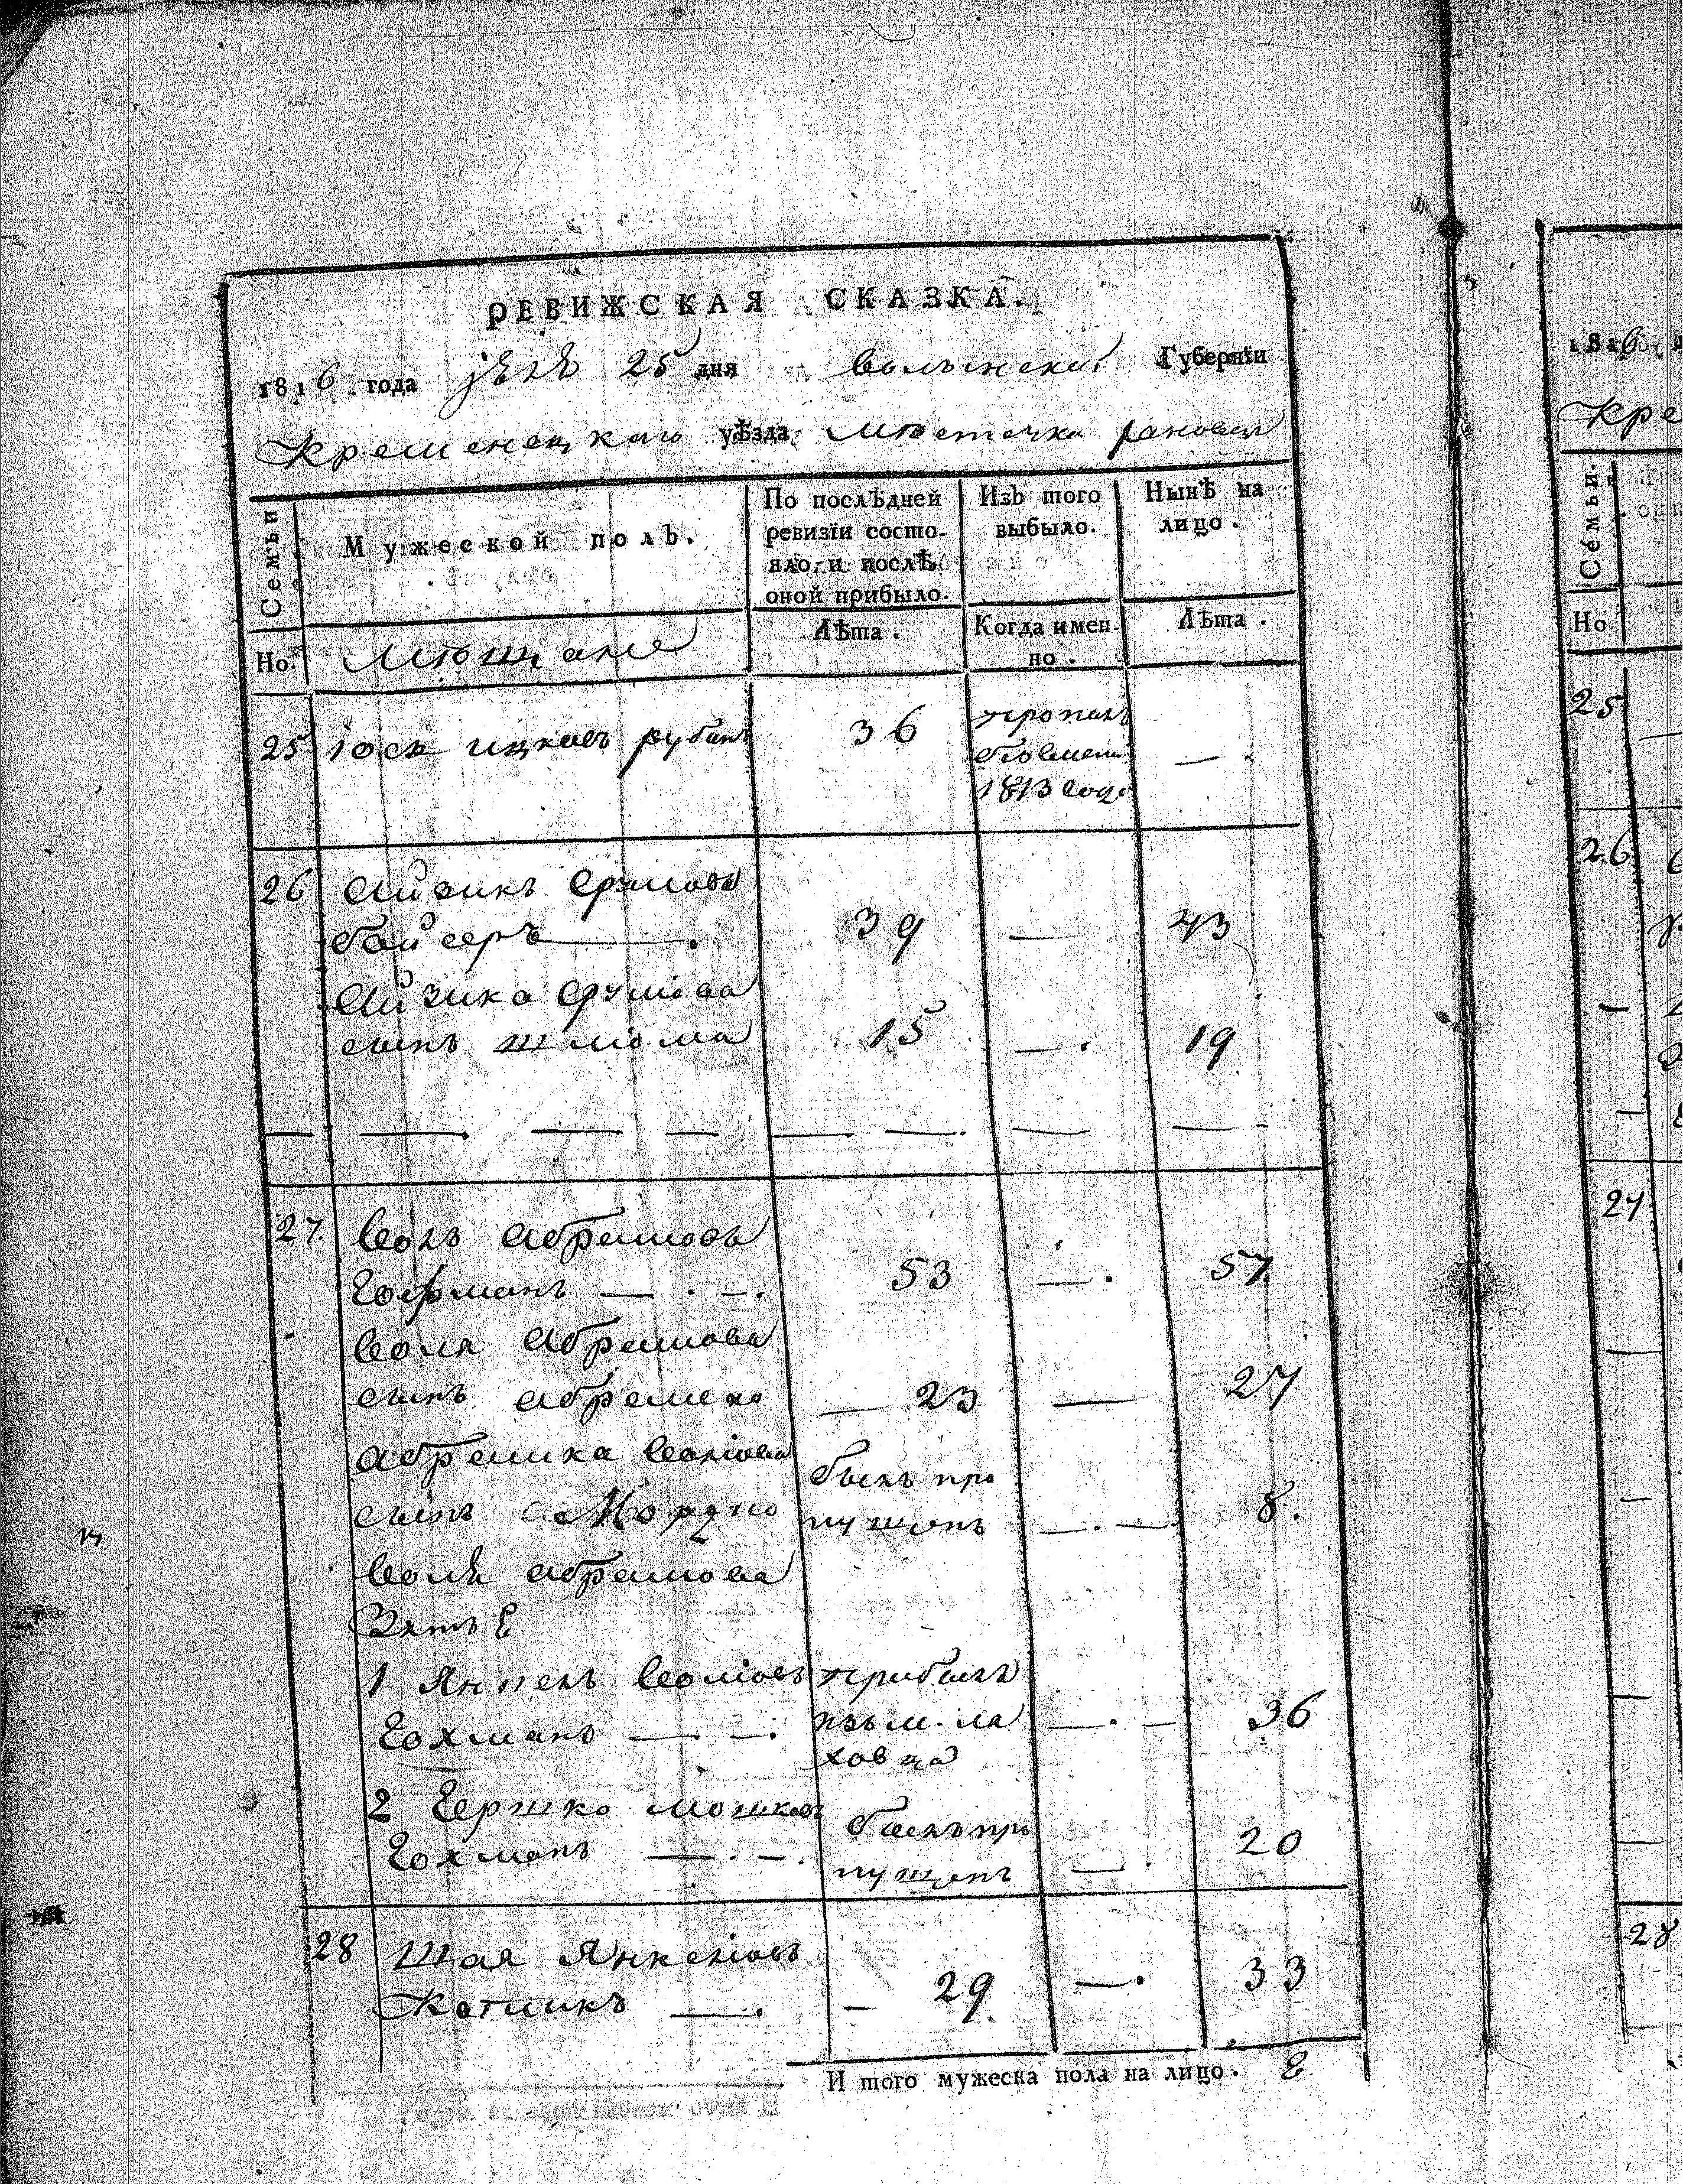 РЕВИЖСКАЯ СКАЗКА.
1816 года 25 дня волынской Губернїи
Кременецкаго уѣзда мѣстечка
Семьи
Мужеской полъ.
По послѣдней
ревизїи состо-
яло и послѣ
оной прибыло.
Изъ того
выбыло.
Нынѣ на
лицо.
Но.
мѣщане
Лѣта.
Когда имен-
но.
Лѣта.
25 іось ицковъ рубанъ 36 пропалъ — .
1813 года
26 айзикъ срулювъ
байсеръ — . 39 — 43
айзика срулюва
сынъ шліома 15 — . 19
— — . — — — — . — —
27. волъ абрамовъ
гофманъ — . — . 53 — . 57.
воля абрамова
сынъ абрамко — 23 — 27
абрамка воліова былъ про
сынъ Мордко пущенъ — . — 8.
воля абрамова
зять
1 Янкель воліовъ прибылъ
гохманъ — . — . изъ м. ля — . — 36
ховца
2 гершко мошковъ былъ про
гохманъ — . — . пущенъ — . 20
28 шая Янкеліовъ
котликъ — . — 29 — . 33
И того мужеска пола на лицо. 8
1816
Кре
Семьи.
Но
25
26
27
28